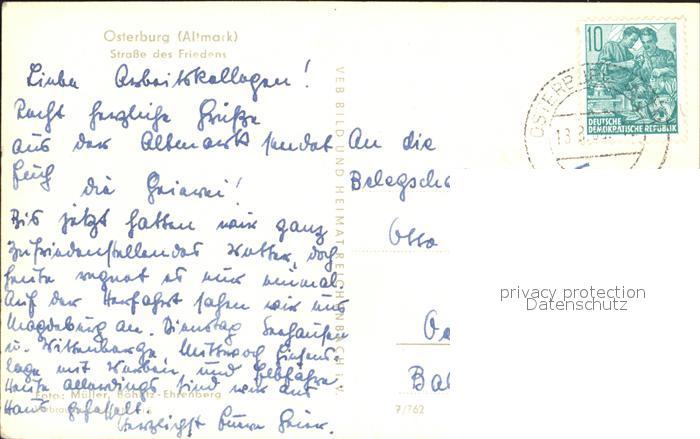 Osterburg (Altmark)
Straße des Friedens
Liebe Arbeitskollegen!
Recht herzliche Grüße
aus der Altmark sendet
Euch die
Bis jetzt hatten wir ganz
zufriedenstellendes Wetter, doch
heute regnet es nur einmal.
Auf der Herfahrt sahen wir uns
Magdeburg an. Dienstag Seehausen
u. Wittenberge, Mittwoch
mit Werben, und
Heute allerdings sind wir ans
Haus gefesselt.
Herzlichst Eure
Foto: Müller, Böhlitz-Ehrenberg
VEB BILD UND HEIMAT REICHENBACH i. V.
7/762
An die
Belegsch
Otto
10
DEUTSCHE
DEMOKRATISCHE REPUBLIK
OSTERBURG
privacy protection
Datenschutz